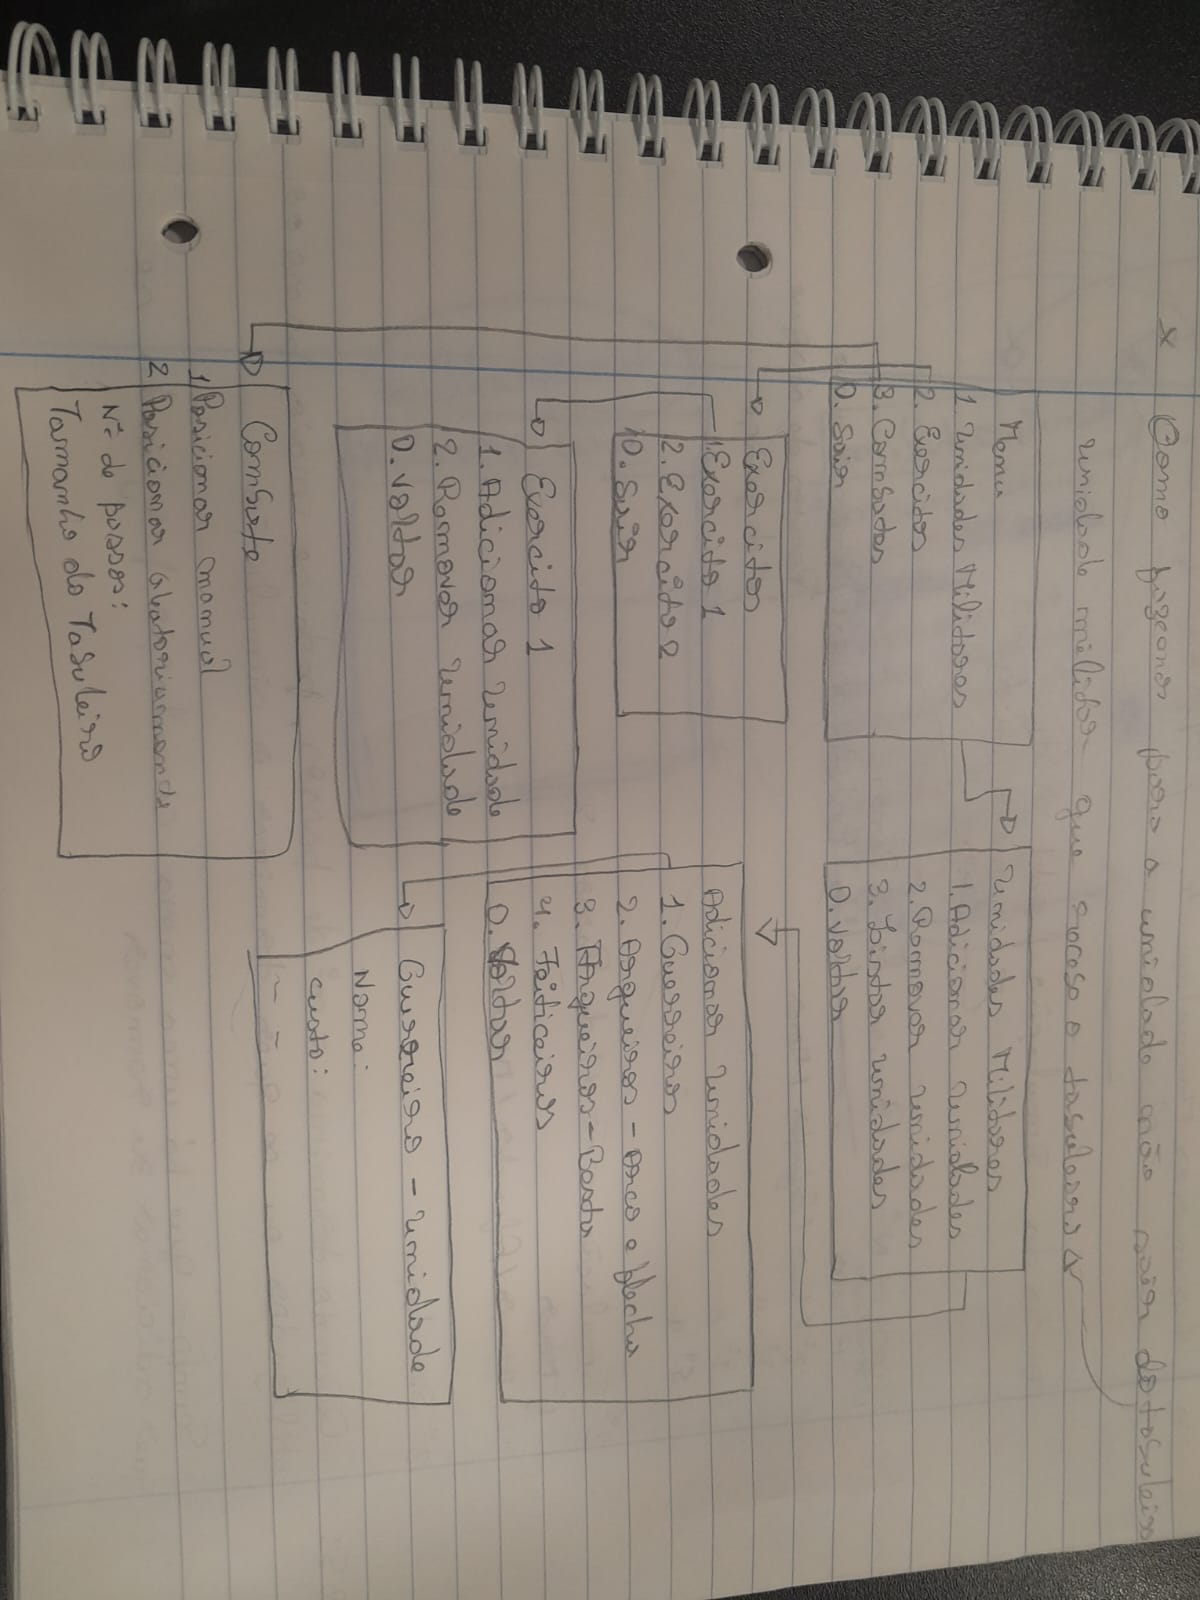 x Como fazemos para a unidade não sair do tabuleiro
unidade militar que recebe o tabuleiro
Menu
1. Unidades Militares
2. Exercitos
3. Combates
0. Sair
Unidades Militares
1. Adicionar unidades
2. Remover unidades
3. Listar unidades
0. Voltar
Exercitos
1. Exercito 1
2. Exercito 2
0. Sair
Adicionar unidades
1. Guerreiros
2. Arqueiros - Arco e flecha
3. Arqueiros - Besta
4. Feiticeiros
0. Voltar
Exercito 1
1. Adicionar unidade
2. Remover unidade
0. Voltar
Guerreiro - unidade
Nome:
custo:
- -
Combate
1 Posicionar manual
2 Posicionar aleatoriamente
Nº de passos:
Tamanho do Tabuleiro